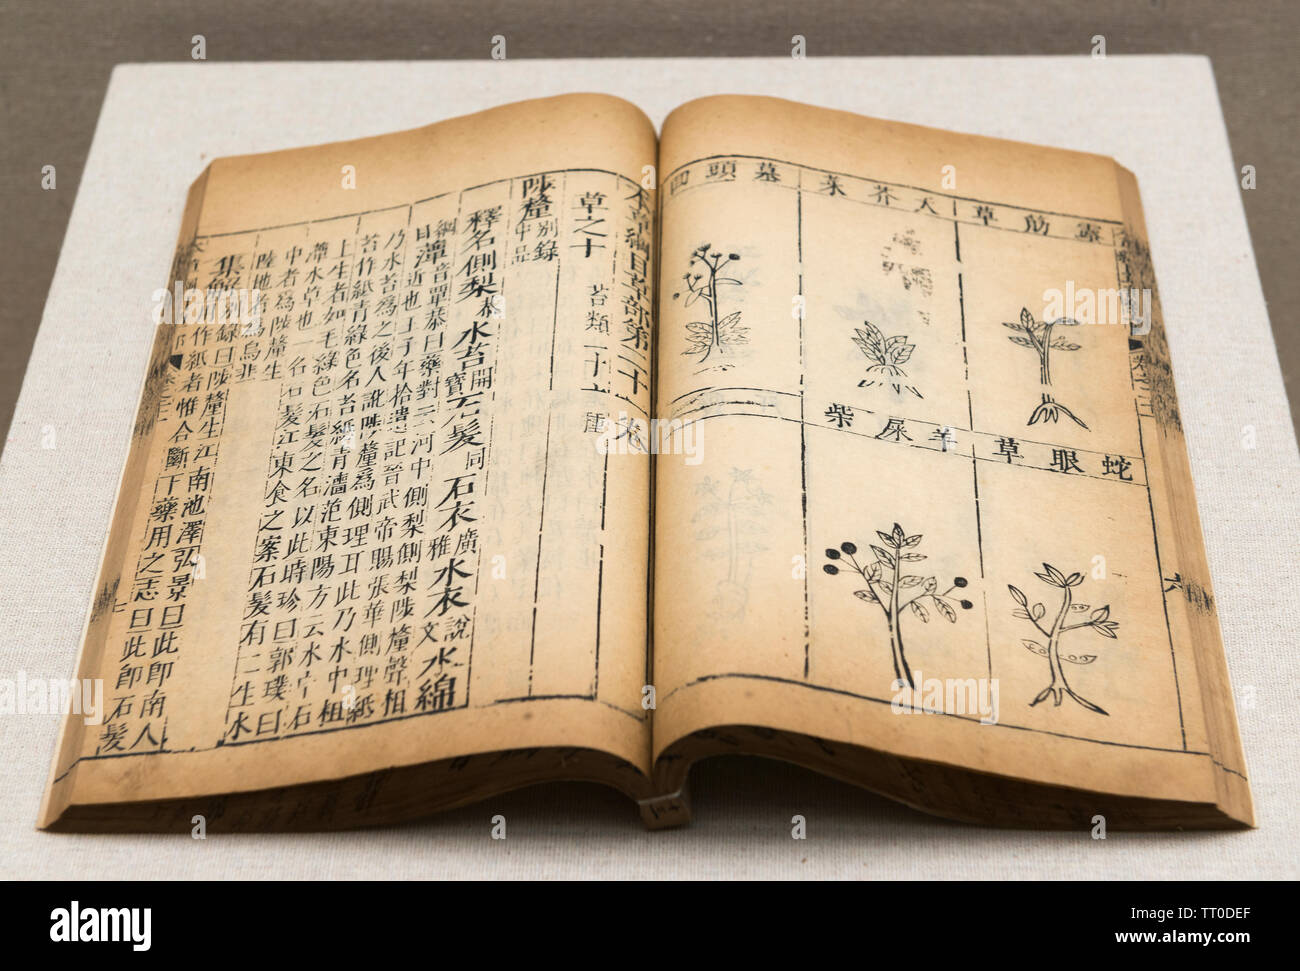 靈筋草
天芥菜
墓頭回
蛇眼草
羊屎柴
六
本草綱目草部第二十一卷
草之十 苔類一十六種
陟釐別錄中品
釋名側梨恭水苔開寶石髮同石衣廣雅水衣說文水綿
綱目藫音單恭曰藥對云河中側梨側梨陟釐聲相
近也王子年拾遺記晉武帝賜張華側理紙
乃水苔為之後人訛陟釐為側理耳此乃水中粗
苔作紙青綠色名苔紙青濇范東陽方云水中石
上生者如毛綠色石髮之名以此時珍曰郭璞曰
藫水草也一名石髮江東食之案石髮有二生水
中者為陟釐生
陸地者為烏韭
集解別錄曰陟釐生江南池澤弘景曰此即南人
用作紙者惟合斷下藥用之志曰此即石髮
alamy
Image ID: TT0DEF
www.alamy.com